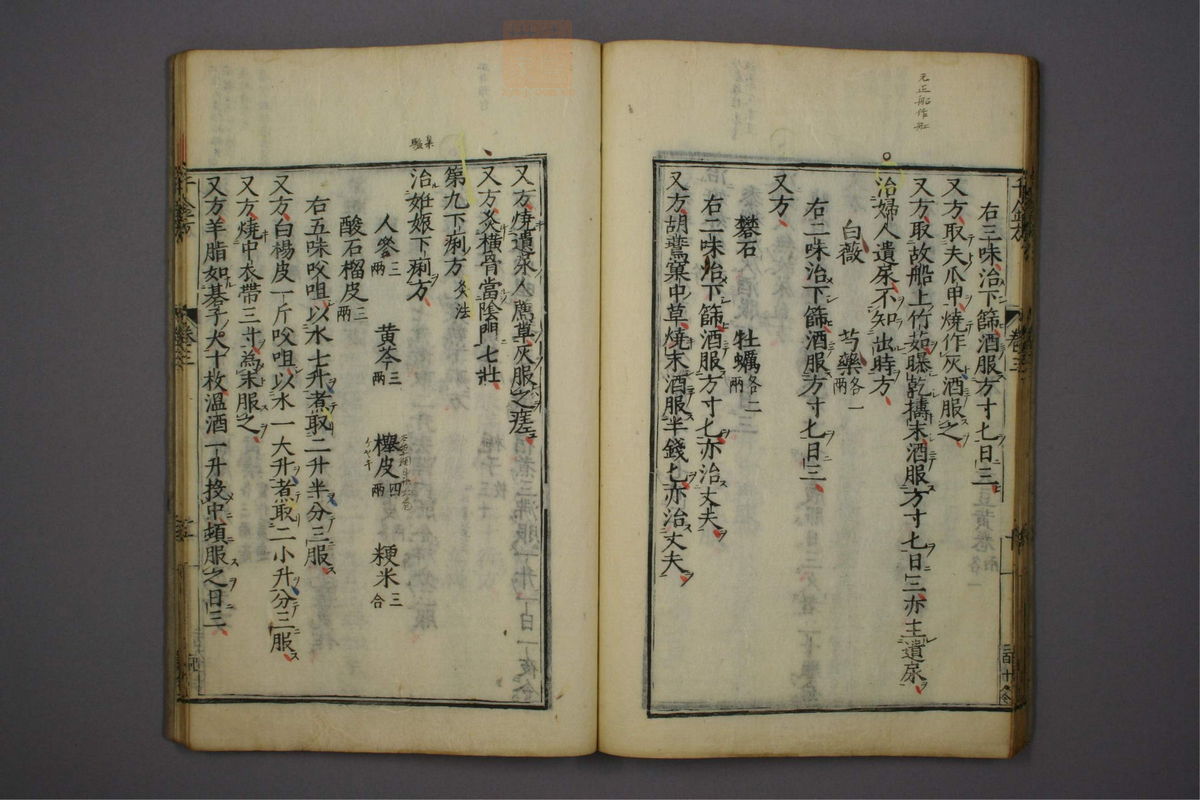 右三味治下篩酒服方寸匕日三
又方取夫爪甲燒作灰酒服之
又方取故船上竹茹曝乾擣末酒服方寸匕日三亦主遺尿
治婦人遺尿不知出時方
白薇 芍藥各一兩
右二味治下篩酒服方寸匕日三
又方
礬石 牡蠣各二兩
右二味治下篩酒服方寸匕亦治丈夫
又方胡鷰窠中草燒末酒服半錢匕亦治丈夫
又方燒遺尿人薦草灰服之瘥
又方灸橫骨當陰門七壯
第九下痢方灸法
治妊娠下痢方
人參三兩 黄芩三兩 櫸皮四兩 粳米三合
酸石榴皮三兩
右五味㕮咀以水七升煮取二升半分三服
又方白楊皮一斤㕮咀以水一大升煮取二小升分三服
又方燒中衣帶三寸為末服之
又方羊脂如棊子大十枚溫酒一升投中頓服之日三
千金方 卷三